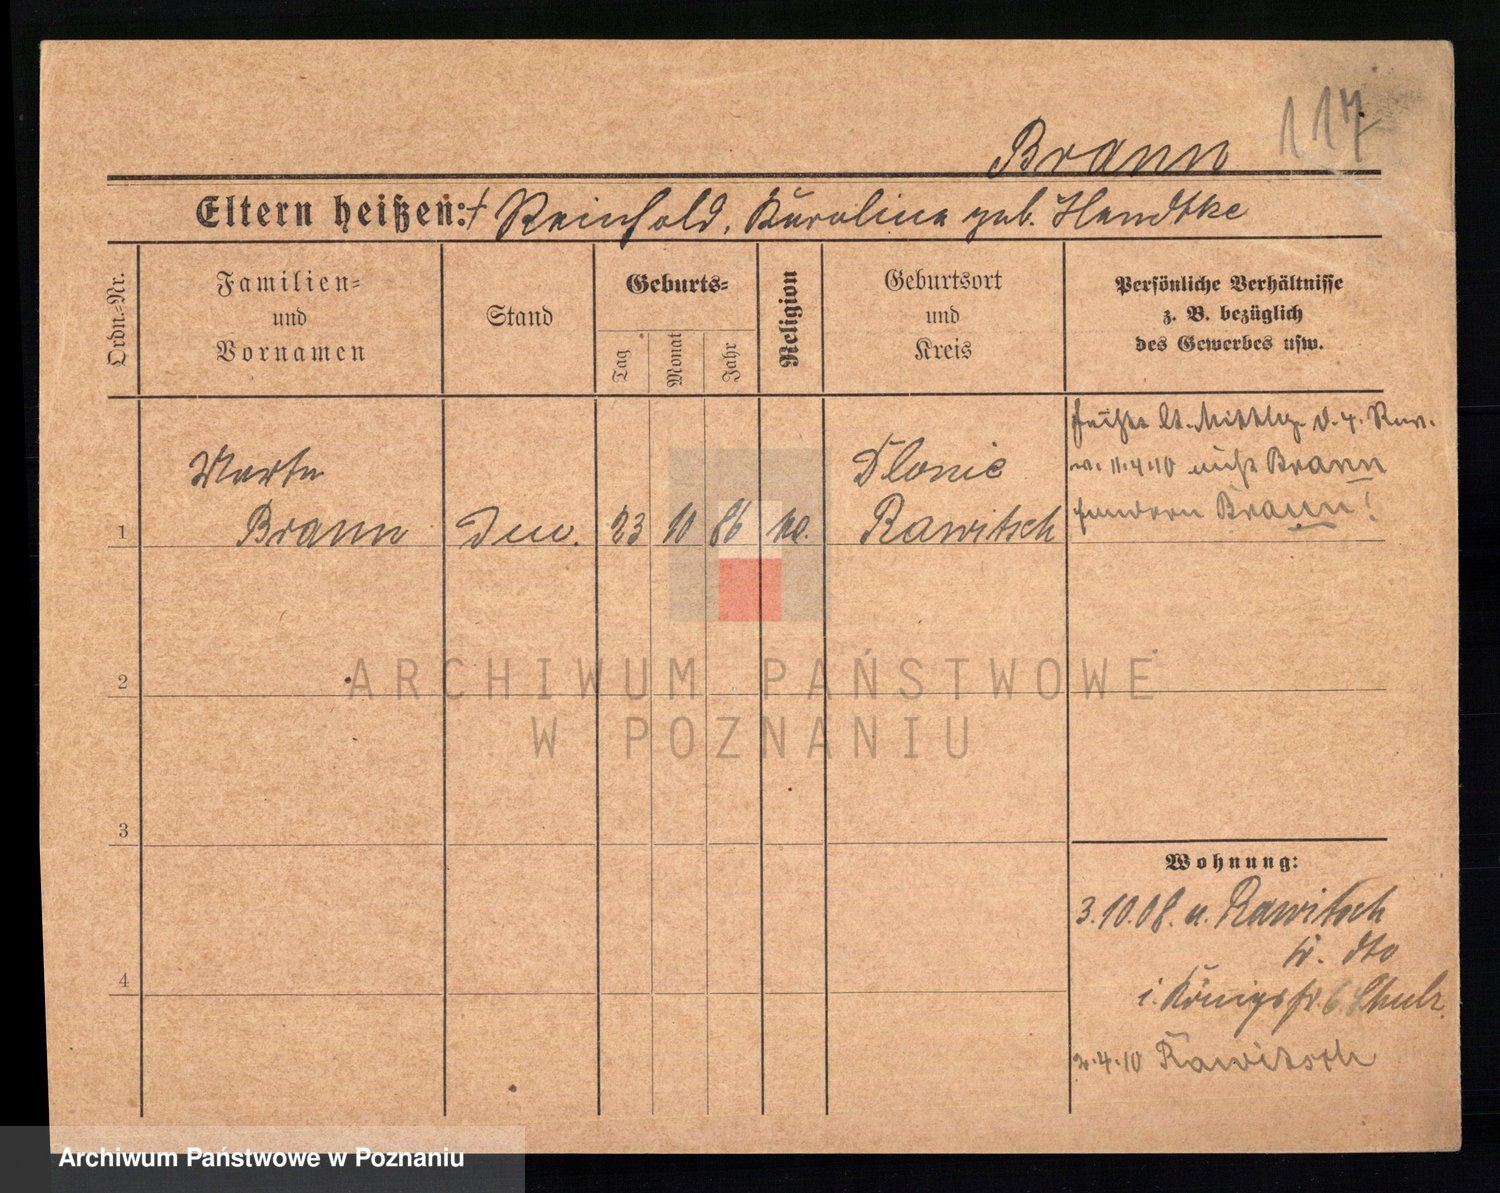 117
Brann
Eltern heißen: † Reinhold, Karoline geb. Handtke
Ordn.-Nr.
Familien-
und
Vornamen
Stand
Geburts-
Tag
Monat
Jahr
Religion
Geburtsort
und
Kreis
Persönliche Verhältnisse
z. B. bezüglich
des Gewerbes usw.
1
Marta
Brann
23
10
86
Slonie
Rawitsch
heißt lt. Mittlg. d.
v. 11.4.10 nicht Brann
sondern Braun!
2
3
4
Wohnung:
3.10.08. v. Rawitsch
dto
i. Königstr. 6 Schulz
4.10 Rawitsch
ARCHIWUM PAŃSTWOWE
W POZNANIU
Archiwum Państwowe w Poznaniu